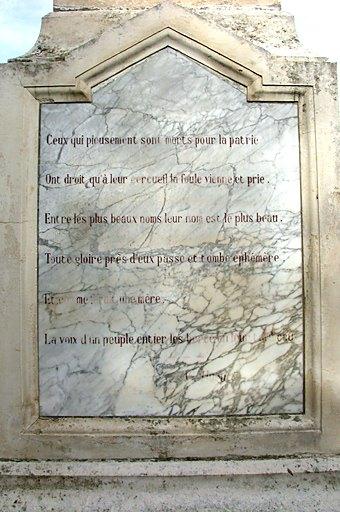 Ceux qui pieusement sont morts pour la patrie
Ont droit qu'à leur cercueil la foule vienne et prie.
Entre les plus beaux noms leur nom est le plus beau.
Toute gloire près d'eux passe et tombe éphémère.
Et me ferait une mère.
La voix d'un peuple entier les